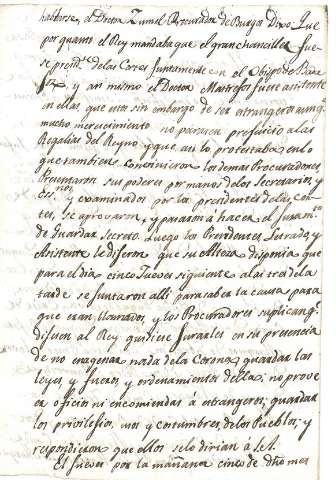 hablarse, el Doctor Zumel Procurador de Burgos Dixo. Que
por quanto el Rey mandaba que el gran chanciller fue-
se presid.te de las Cortes juntamente con el Obispo de Bada-
joz, y an mismo el Doctor Maestrefos fuere asistente
en ellas, que esto sin embargo de ser estrangeros aunq.
mucho merecimiento no parara prejuicio a las
Regalias del Reyno y que asi lo protestaba, en lo
que tambien convinieron los demas Procuradores,
Presentaron sus poderes por manos de los Secretarios, y
Ess.nos y examinados por los presidentes de las Cor-
tes, se aprovaron, y pasaron a hacer el Juram.to
de Guardar secreto. Luego los Presidentes, Letrado, y
Asistente le dixeron que su Alteza disponia que
para el dia cinco Jueves siguiente a las tres de la
tarde se juntaron alli para saber la causa para
que eran llamados, y los Procuradores suplicang.
dixesen al Rey quisiese Jurarles en su presencia
de no enagenar nada de la Corona, guardar las
leyes, y fueros, y ordenamientos della, no prove
er oficios ni encomiendas á estrangeros, guardar
los privilesios, usos y costumbres, de los Pueblos; y
respondieron que ellos selo dirian á S.A.
El jueves por la mañana cinco de dho mes